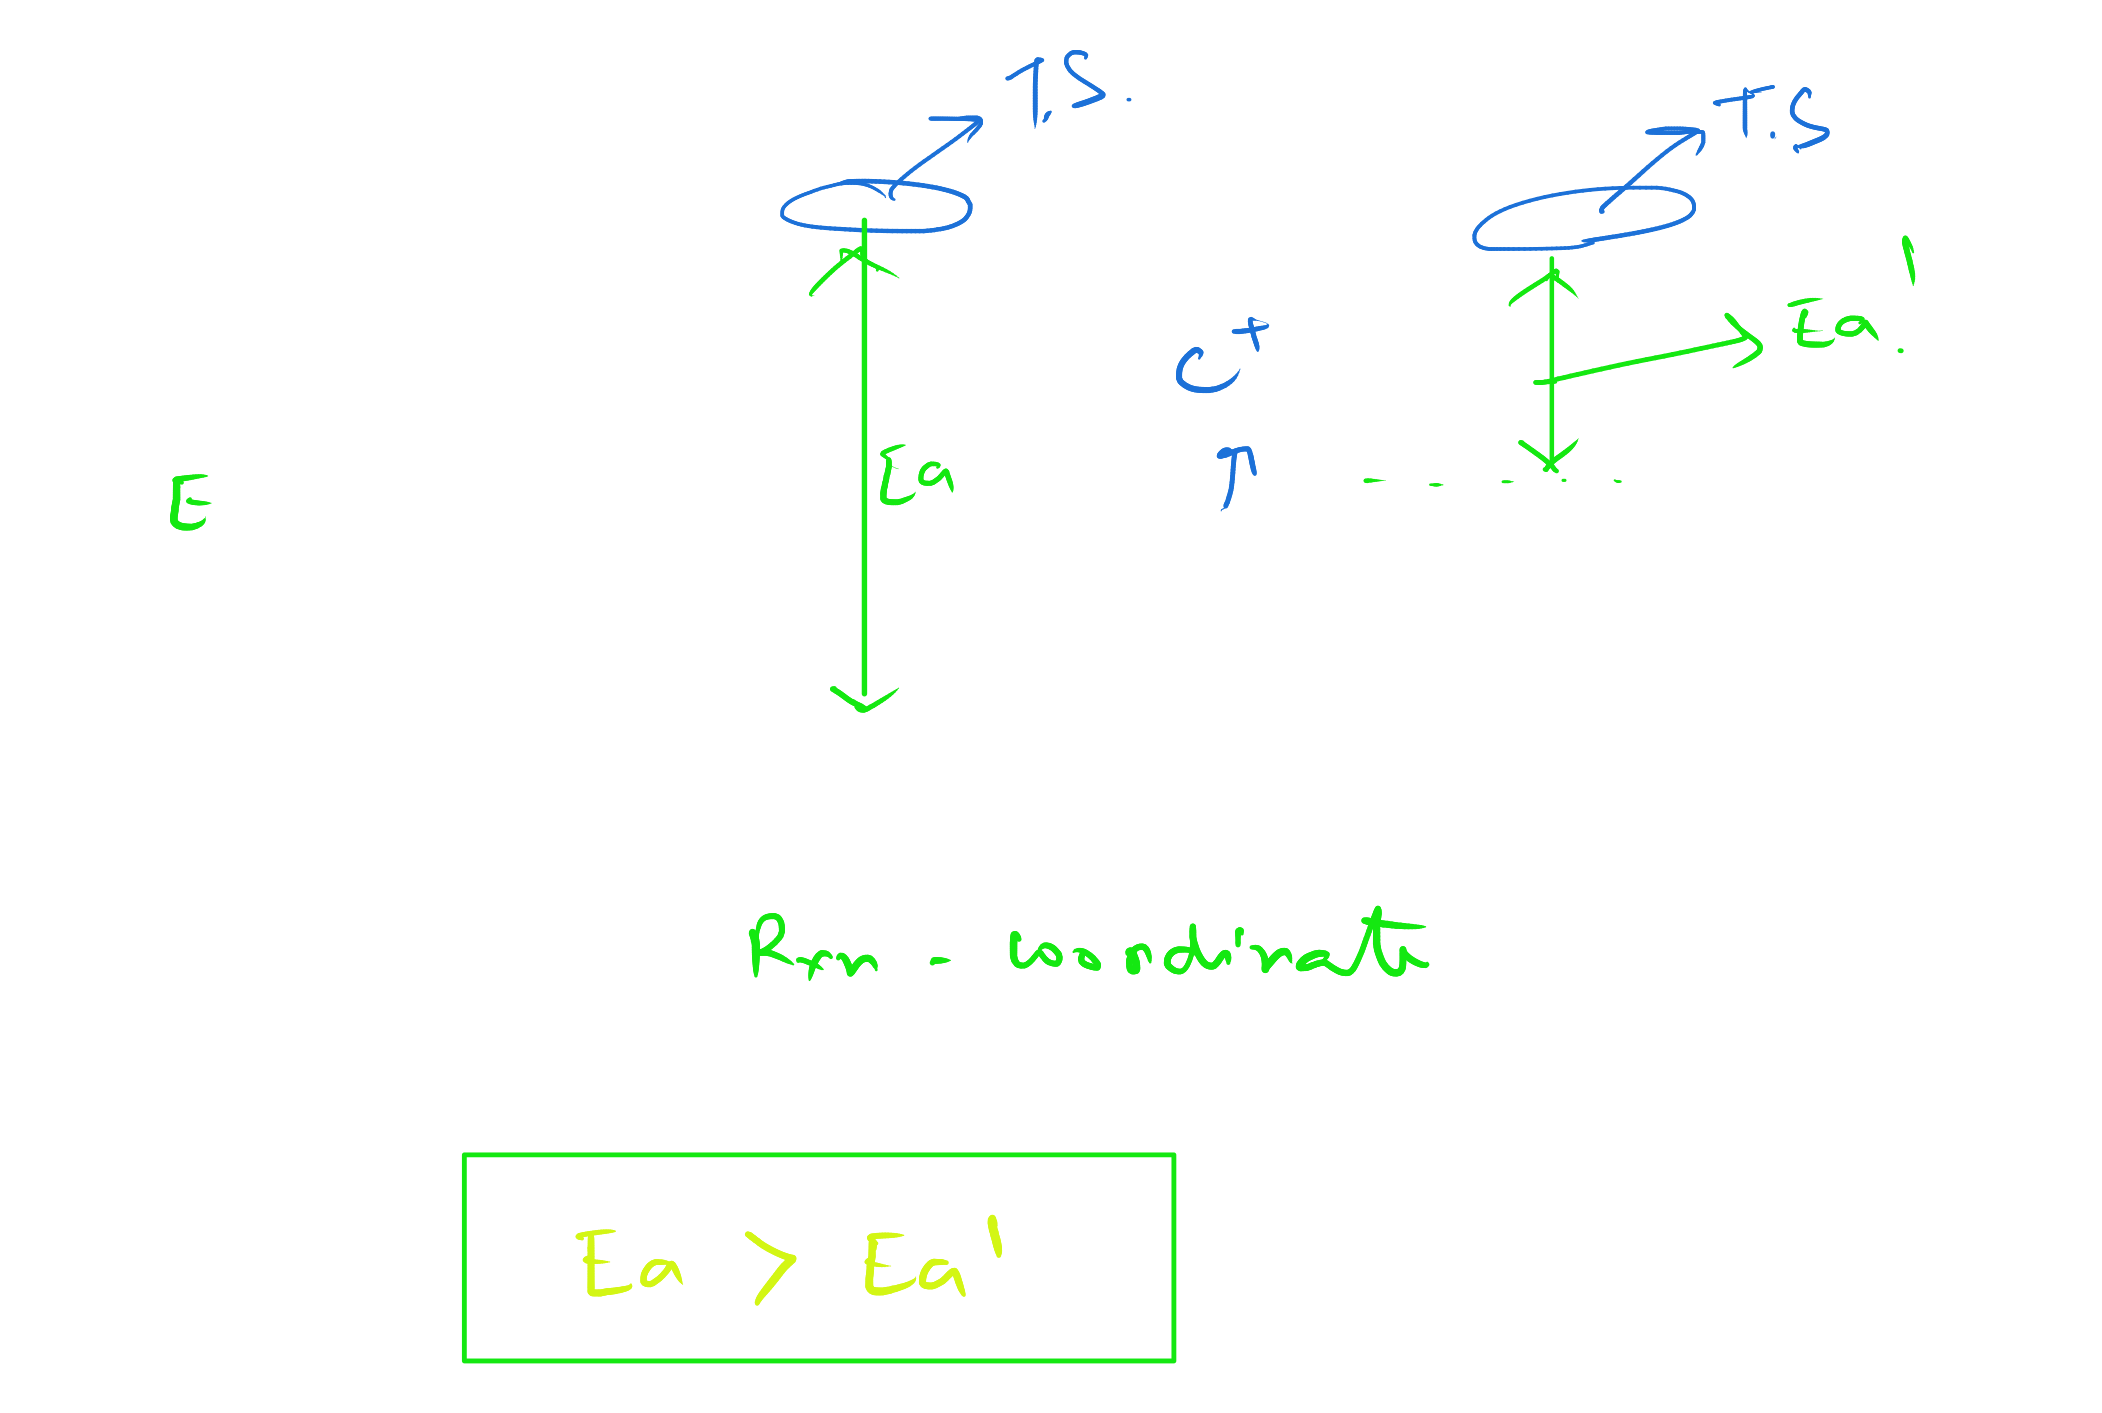 T.S.
T.S
C⁺
Ea'
Ea
E
Rxn - coordinate
Ea > Ea'